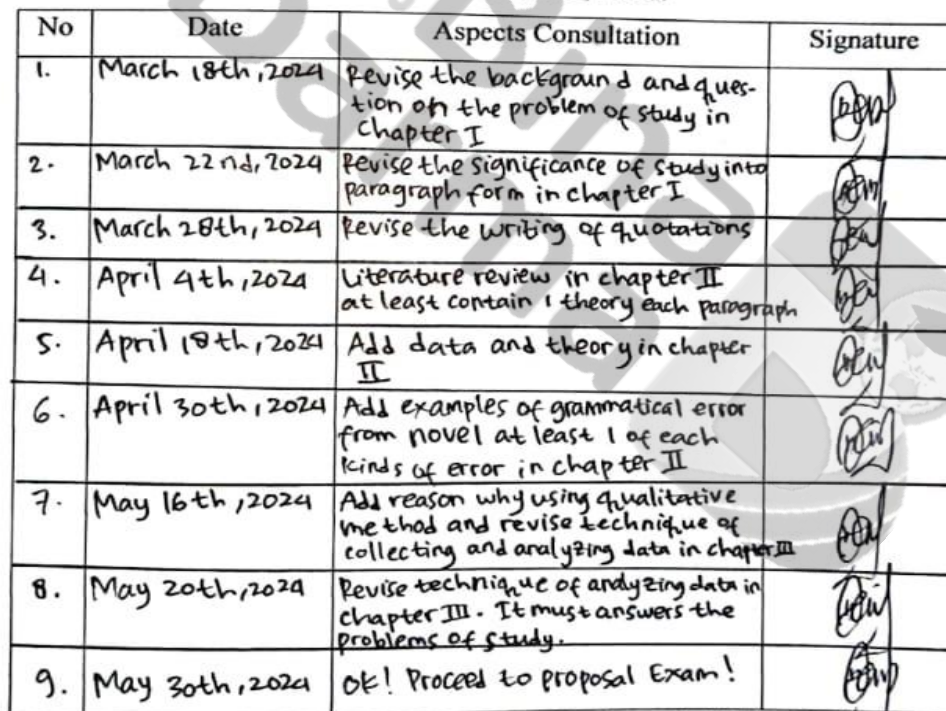 No Date Aspects Consultation Signature
1. March 18th, 2024 Revise the background and ques-
tion on the problem of study in
Chapter I
2. March 22nd, 2024 Revise the significance of study into
paragraph form in chapter I
3. March 28th, 2024 Revise the writing of quotations
4. April 4th, 2024 Literature review in chapter II
at least contain 1 theory each paragraph
5. April 18th, 2024 Add data and theory in chapter
II
6. April 30th, 2024 Add examples of grammatical error
from novel at least 1 of each
kinds of error in chapter II
7. May 16th, 2024 Add reason why using qualitative
method and revise technique of
collecting and analyzing data in chapter III
8. May 20th, 2024 Revise technique of analyzing data in
chapter III. It must answers the
problems of study.
9. May 30th, 2024 OK! Proceed to proposal Exam!
Bina
Darma